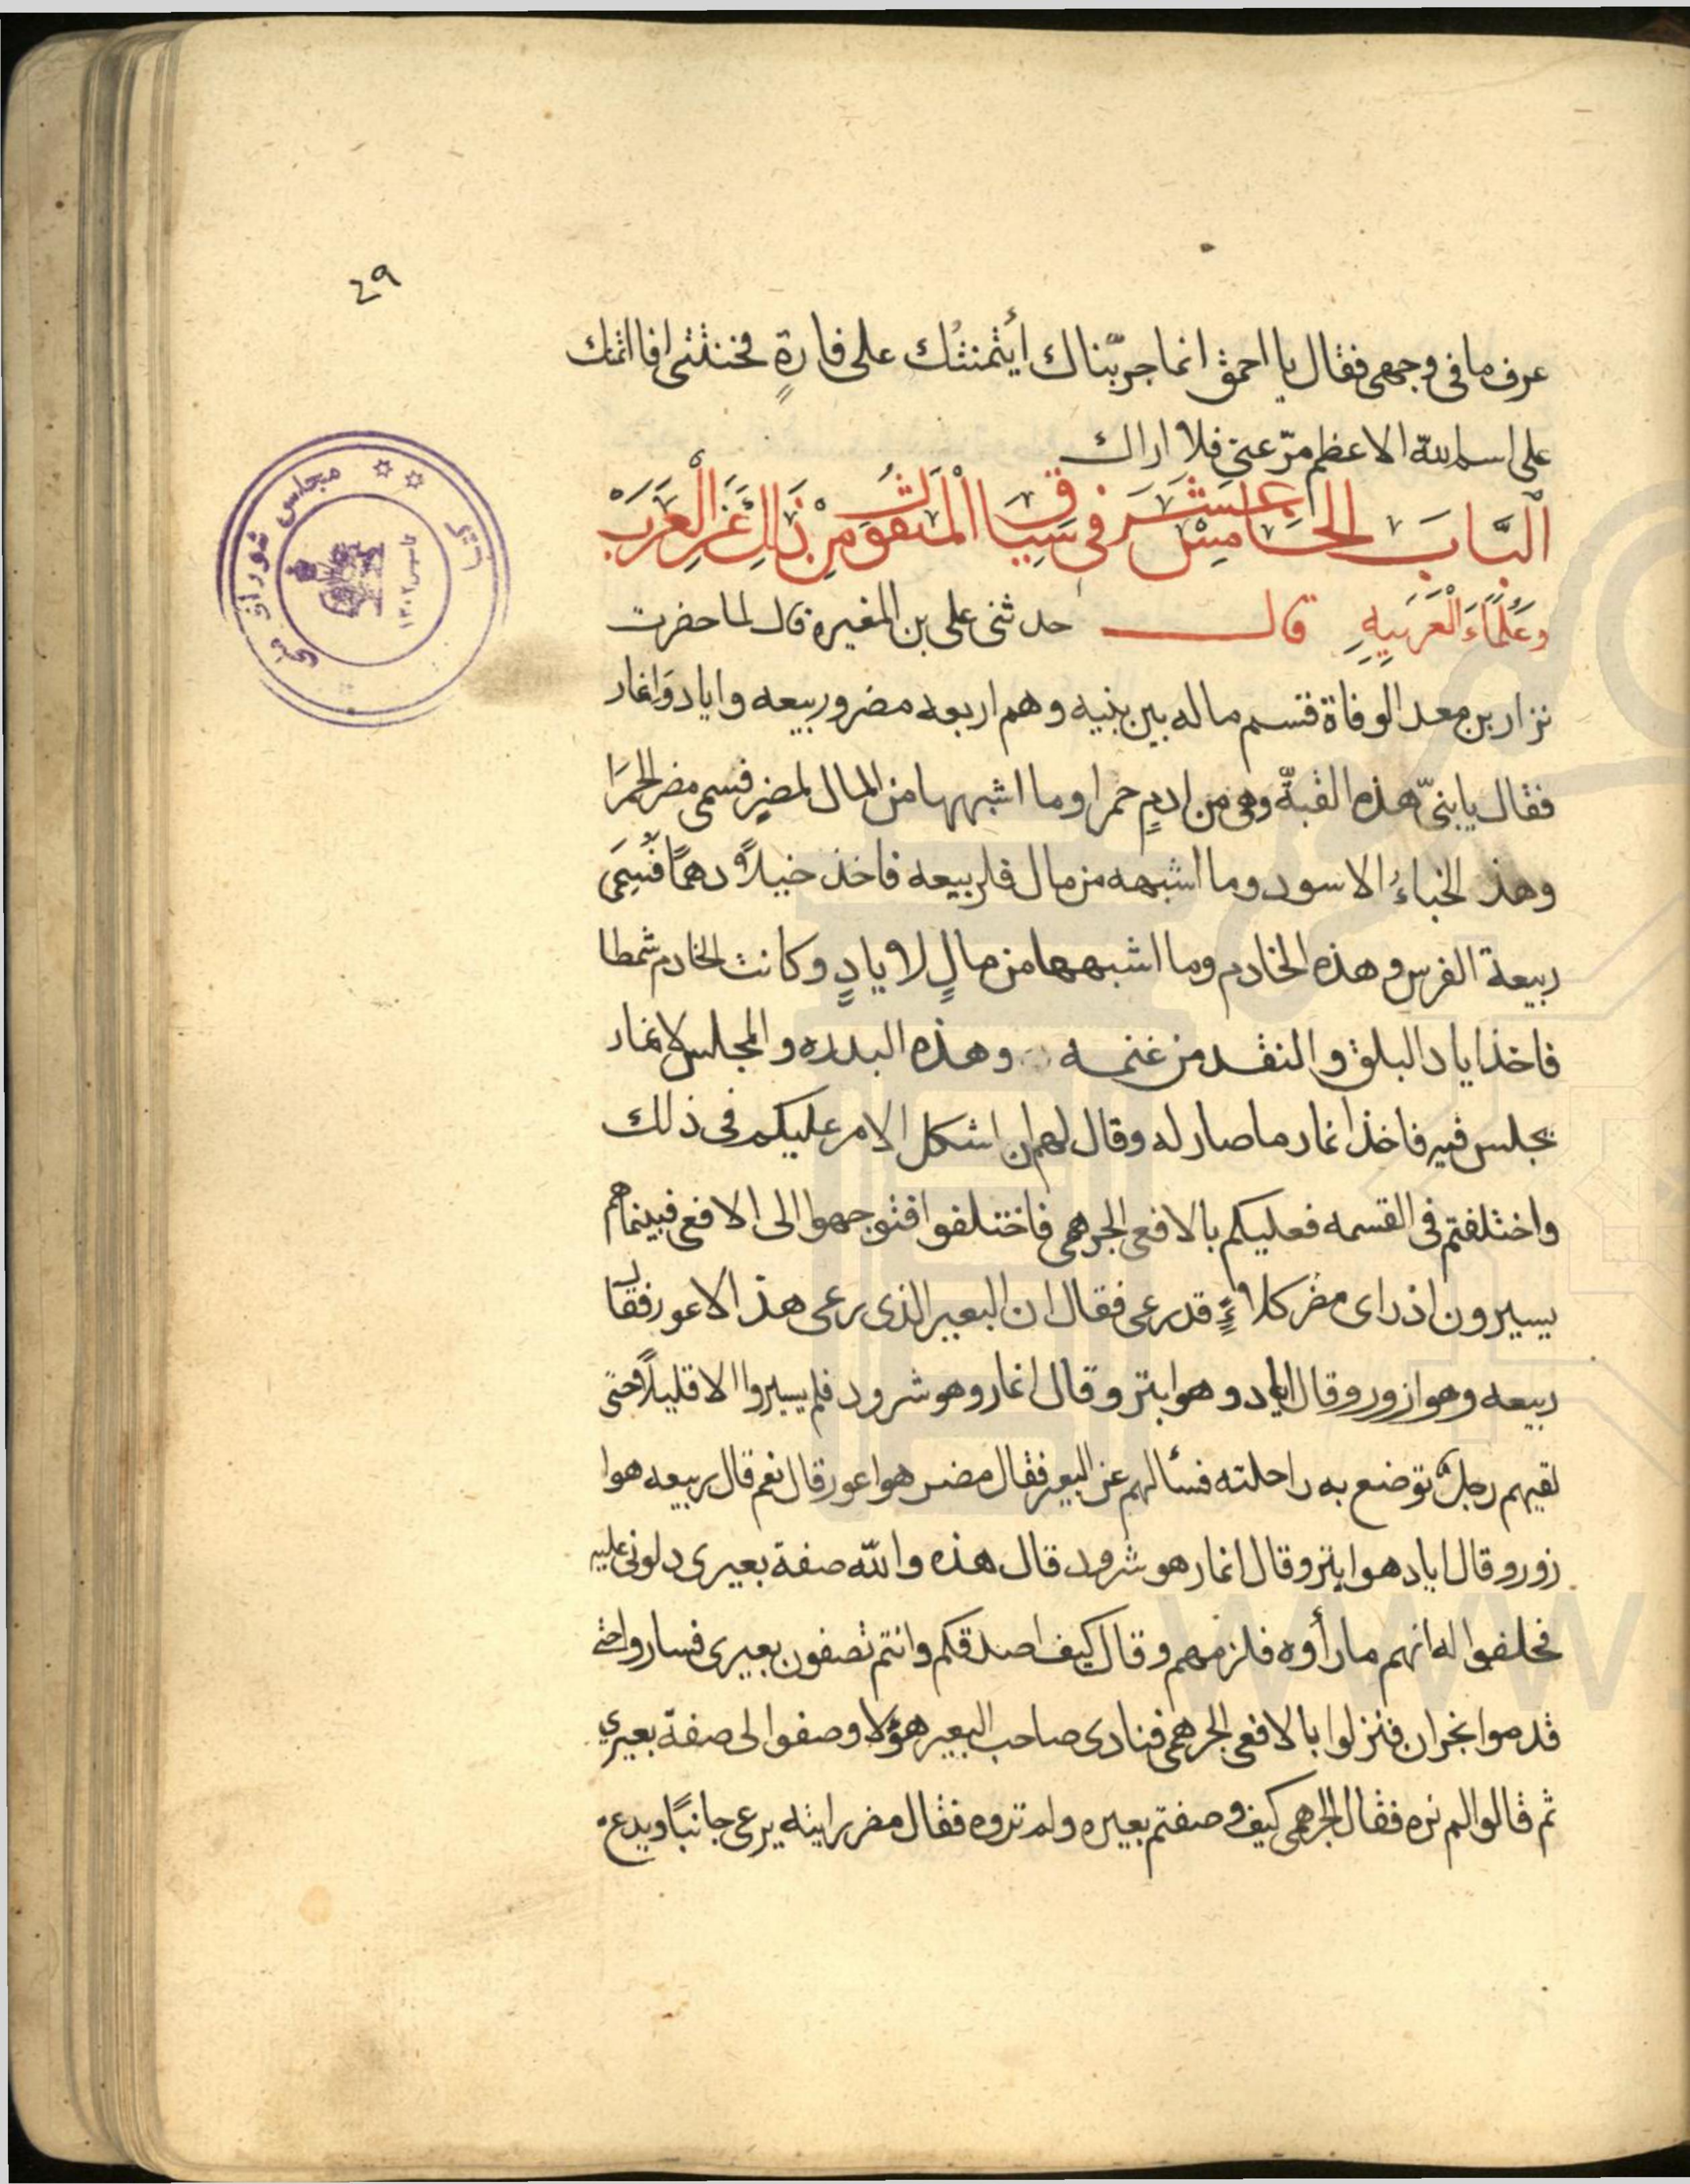 ٤٩
عرف ما فى وجهى فقال يا احمق انما جرّبناك أيْتمنتُك على فارةٍ فخنتنى افا اتمنك
على اسم الله الاعظم مرّ عنى فلا اراك
اَلبَّابَ الخَامِسْ عَشَرَ فى سِيَاق اْلمَنقوُلَْ مِنْ ذَالِكَ عَنِ الْعَرَبَ
وَعُلَمَاءَ الْعَرَبيهِ قال حدثنى على بن المغيره قال لما حضرت
نزار بن معد الوفاة قسم ماله بين بنيه وهم اربعه مضر وربيعه واياد وَانمار
فقال يا بنىّ هذه القبّة وهى من اديمٍ حمرا وما اشبهها من المال لمضرٍ فسمى مضر الحمرَا
وهذ الخباءُ الاسود وما اشبهه من مال فلربيعه فاخذ خيلاً دهمًا فسُمِىَ
ربيعة الفرس وهذه الخادم وما اشبهها من مالٍ لايادٍ وكانت الخادم شمطا
فاخذ اياد البلق والنقد من غنمه وهذه البدره والمجلس لانمار
يجلس فيه فاخذ انمار ما صار له وقال لهم ان اشكل الامر عليكم فى ذلك
واختلفتم فى القسمه فعليكم بالافعى الجرهمى فاختلفوا فتوجهوا الى الافعى فبينما هم
يسيرون اذ راى مضر كلاءً قد رعى فقال ان البعير الذى رعى هذ الاعور فقال
ربيعه وهو ازور وقال اياد وهو ابتر وقال انمار وهو شرود فلم يسيروا الا قليلاً حتى
لقيهم رجلٌ توضع به راحلته فسألهم عن البعير فقال مضر هو اعور قال نعم قال ربيعه هو ا
زور وقال اياد هو ابتر وقال انمار هو شرود قال هذه والله صفة بعيرى دلونى عليه
فحلفوا له انهم ما رأوه فلزمهم وقال كيف اصدقكم وانتم تصفون بعيرى فساروا حتى
قدموا نجران فنزلوا بالافعى الجرهمى فنادى صاحب البعير هؤلا وصفوا لى صفة بعيري
ثم قالوا لم نره فقال الجرهمى كيف وصفتم بعيره ولم تروه فقال مضر رايته يرعى جانبًا ويدع
مجلس شوراى ملى
تاسيس ١٣٠٢